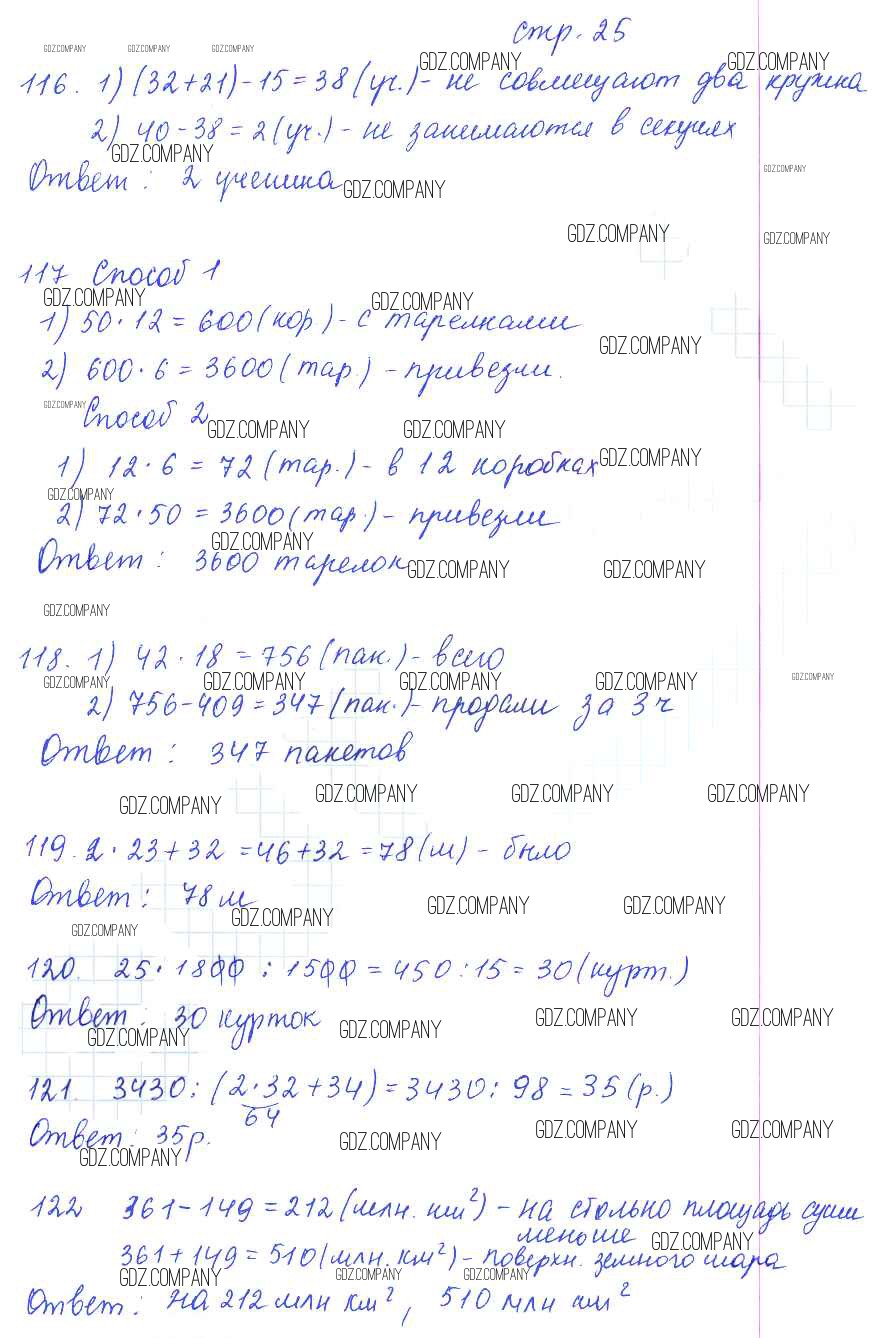 стр. 25
GDZ.COMPANY GDZ.COMPANY GDZ.COMPANY
GDZ.COMPANY GDZ.COMPANY
116. 1) (32+21)-15=38 (уч.)- не совмещают два кружка
2) 40-38=2 (уч.) - не занимаются в секциях
GDZ.COMPANY
GDZ.COMPANY
Ответ: 2 ученика GDZ.COMPANY
GDZ.COMPANY GDZ.COMPANY
117 Способ 1
GDZ.COMPANY GDZ.COMPANY
1) 50·12=600 (кор) - с тарелками
GDZ.COMPANY
2) 600·6=3600 (тар.) - привезли.
GDZ.COMPANY Способ 2 GDZ.COMPANY GDZ.COMPANY
1) 12·6=72 (тар.) - в 12 коробках GDZ.COMPANY
GDZ.COMPANY
2) 72·50=3600 (тар) - привезли
GDZ.COMPANY
Ответ: 3600 тарелок GDZ.COMPANY GDZ.COMPANY
GDZ.COMPANY
118. 1) 42·18=756 (пак.) - всего
GDZ.COMPANY GDZ.COMPANY GDZ.COMPANY GDZ.COMPANY GDZ.COMPANY
2) 756-409=347 (пак.)- продали за 3 ч
Ответ: 347 пакетов
GDZ.COMPANY GDZ.COMPANY GDZ.COMPANY GDZ.COMPANY
119. 2·23+32=46+32=78 (м) - было
Ответ: 78 м
GDZ.COMPANY GDZ.COMPANY GDZ.COMPANY
GDZ.COMPANY
120. 25·1800:1500=450:15=30 (курт.)
Ответ: 30 курток
GDZ.COMPANY GDZ.COMPANY GDZ.COMPANY GDZ.COMPANY
121. 3430:(2·32+34)=3430:98=35 (р.)
64
Ответ: 35 р.
GDZ.COMPANY GDZ.COMPANY GDZ.COMPANY GDZ.COMPANY
122 361-149=212 (млн. км²) - на столько площадь суши
меньше GDZ.COMPANY
361+149=510 (млн. км²) - поверхн. земного шара
GDZ.COMPANY GDZ.COMPANY GDZ.COMPANY
Ответ: на 212 млн км², 510 млн км²